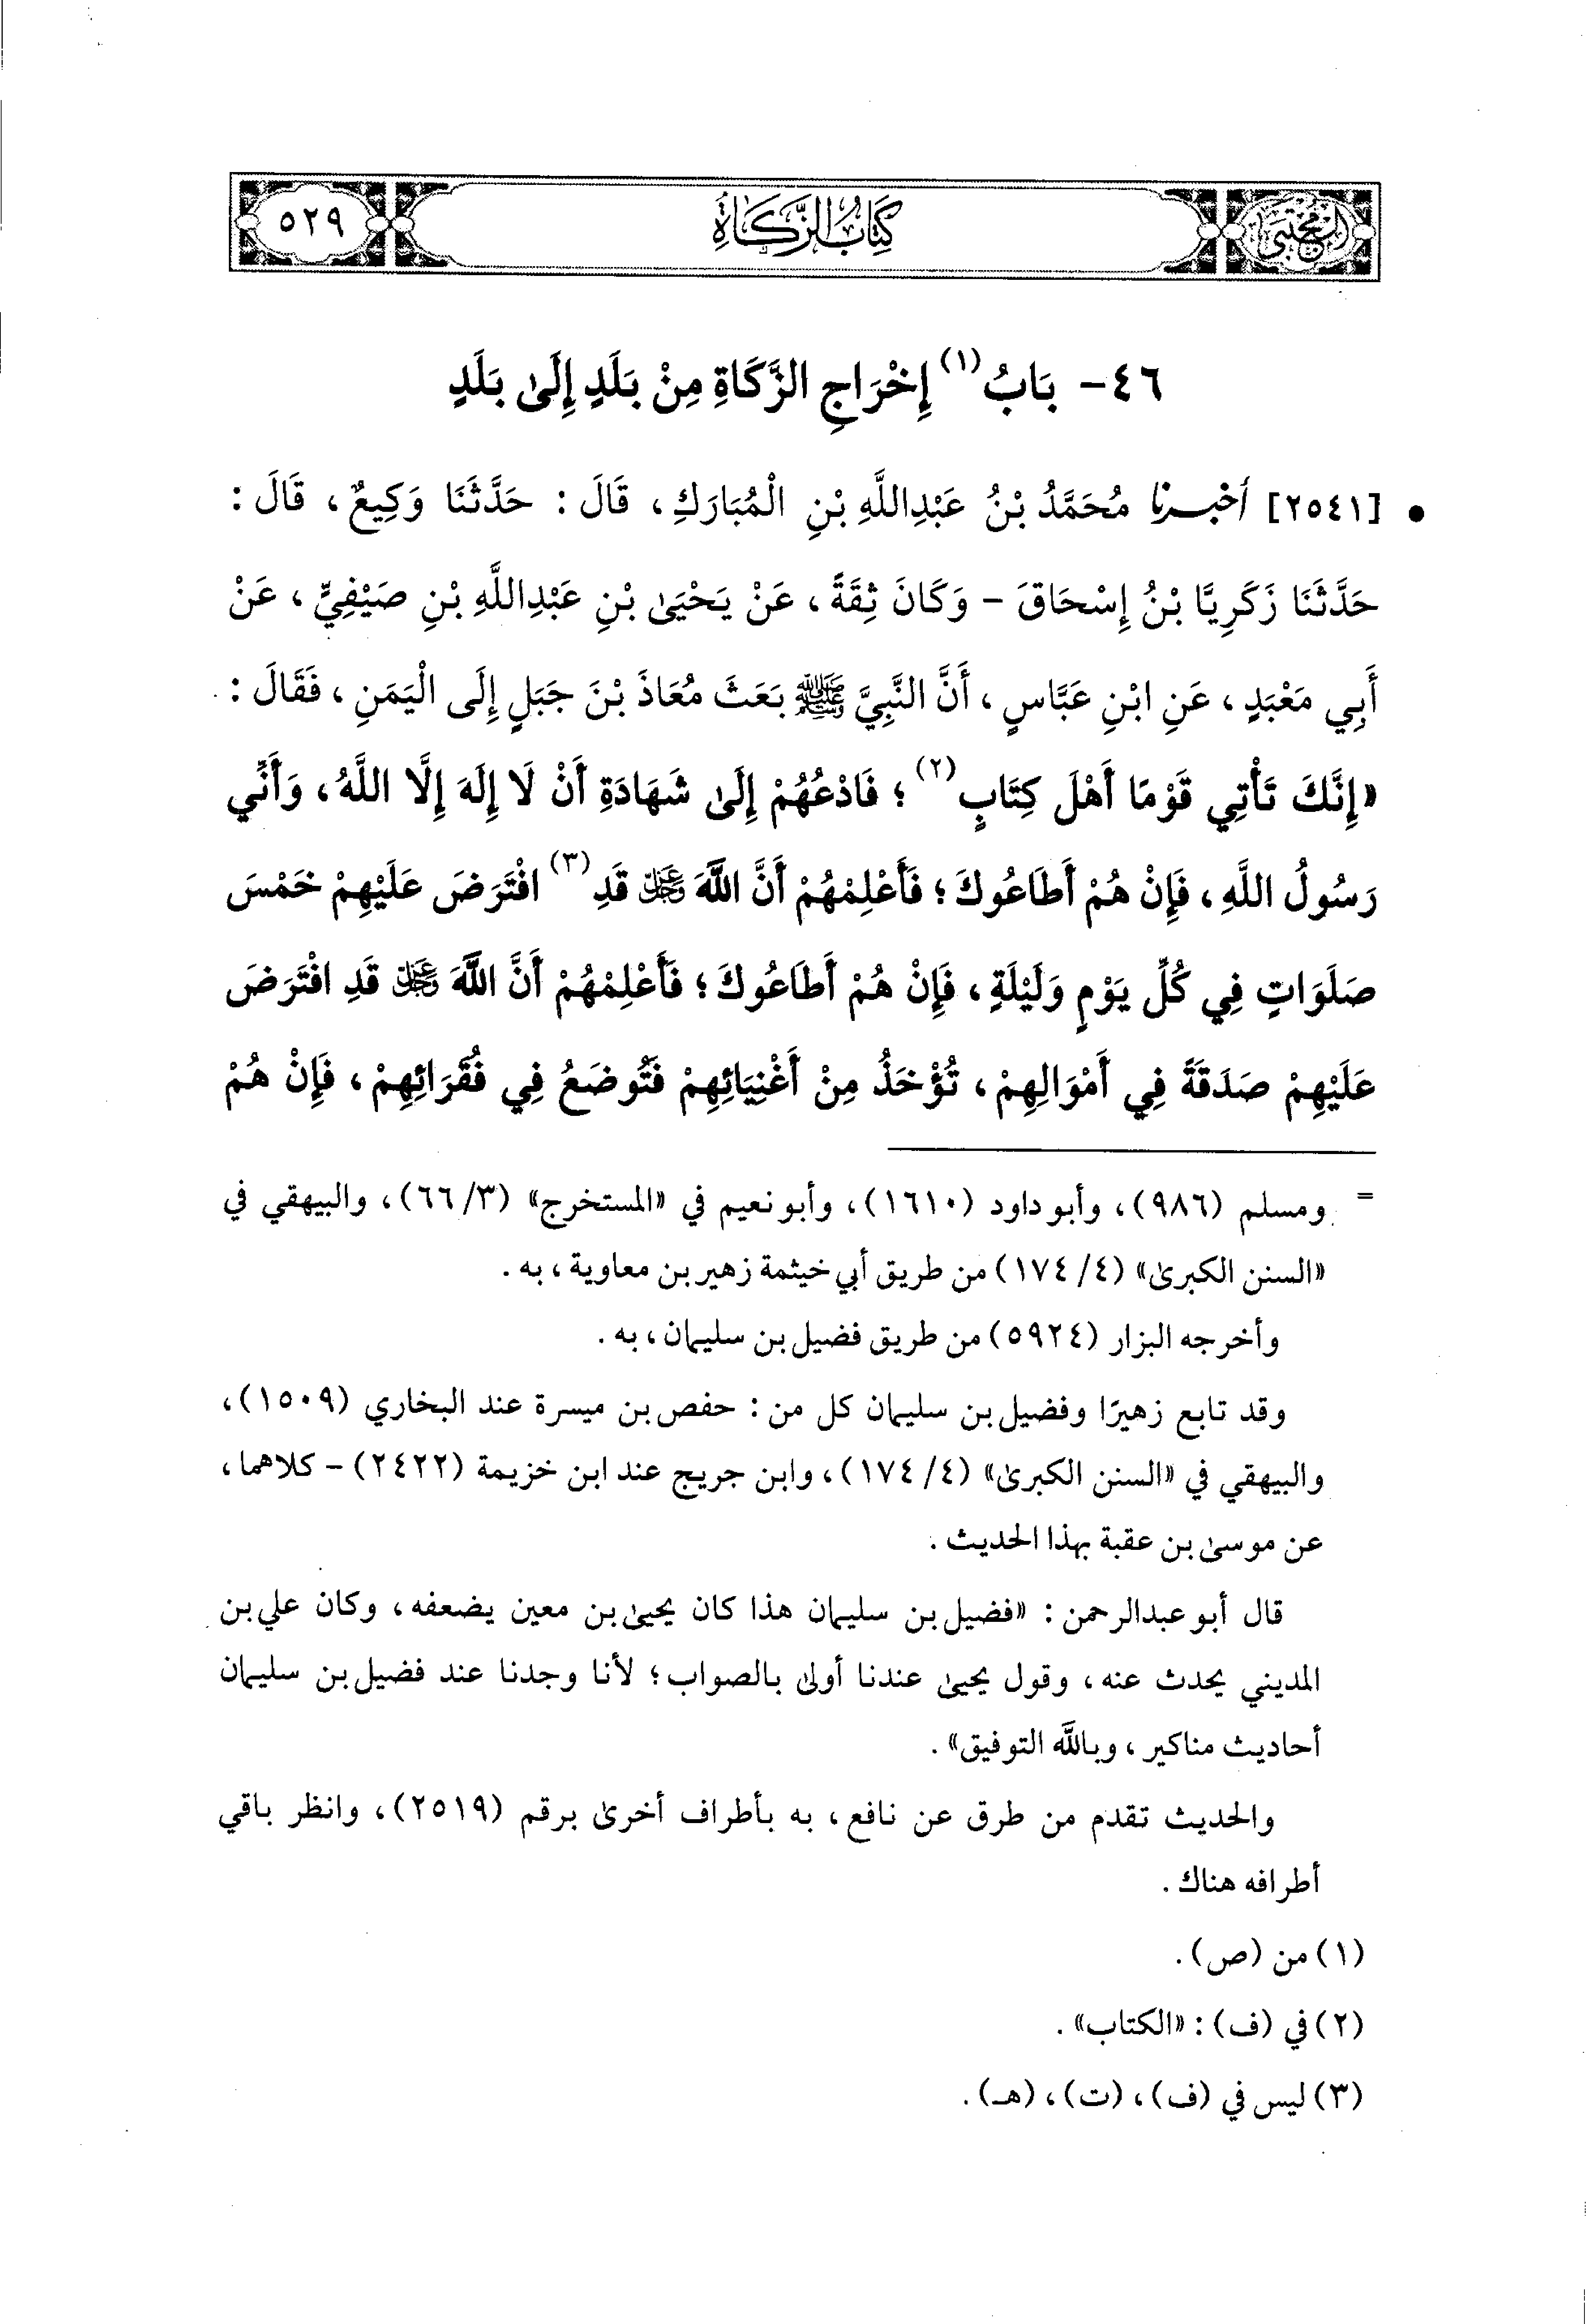 المجتبى
كتاب الزكاة
٥٢٩
٤٦- بَابُ(١) إِخْرَاجِ الزَّكَاةِ مِنْ بَلَدٍ إِلَىٰ بَلَدٍ
• [٢٥٤١] أخبرنا مُحَمَّدُ بْنُ عَبْدِاللَّهِ بْنِ الْمُبَارَكِ، قَالَ: حَدَّثَنَا وَكِيعٌ، قَالَ:
حَدَّثَنَا زَكَرِيَّا بْنُ إِسْحَاقَ - وَكَانَ ثِقَةً، عَنْ يَحْيَىٰ بْنِ عَبْدِاللَّهِ بْنِ صَيْفِيٍّ، عَنْ
أَبِي مَعْبَدٍ، عَنِ ابْنِ عَبَّاسٍ، أَنَّ النَّبِيَّ ﷺ بَعَثَ مُعَاذَ بْنَ جَبَلٍ إِلَى الْيَمَنِ، فَقَالَ:
«إِنَّكَ تَأْتِي قَوْمًا أَهْلَ كِتَابٍ(٢)؛ فَادْعُهُمْ إِلَىٰ شَهَادَةِ أَنْ لَا إِلَهَ إِلَّا اللَّهُ، وَأَنِّي
رَسُولُ اللَّهِ، فَإِنْ هُمْ أَطَاعُوكَ؛ فَأَعْلِمْهُمْ أَنَّ اللَّهَ عَزَّ وَجَلَّ قَدِ(٣) افْتَرَضَ عَلَيْهِمْ خَمْسَ
صَلَوَاتٍ فِي كُلِّ يَوْمٍ وَلَيْلَةٍ، فَإِنْ هُمْ أَطَاعُوكَ؛ فَأَعْلِمْهُمْ أَنَّ اللَّهَ عَزَّ وَجَلَّ قَدِ افْتَرَضَ
عَلَيْهِمْ صَدَقَةً فِي أَمْوَالِهِمْ، تُؤْخَذُ مِنْ أَغْنِيَائِهِمْ فَتُوضَعُ فِي فُقَرَائِهِمْ، فَإِنْ هُمْ
= ومسلم (٩٨٦)، وأبو داود (١٦١٠)، وأبو نعيم في «المستخرج» (٣/ ٦٦)، والبيهقي في
«السنن الكبرىٰ» (٤/ ١٧٤) من طريق أبي خيثمة زهير بن معاوية، به.
وأخرجه البزار (٥٩٢٤) من طريق فضيل بن سليمان، به.
وقد تابع زهيرًا وفضيل بن سليمان كل من: حفص بن ميسرة عند البخاري (١٥٠٩)،
والبيهقي في «السنن الكبرىٰ» (٤/ ١٧٤)، وابن جريج عند ابن خزيمة (٢٤٢٢) - كلاهما،
عن موسىٰ بن عقبة بهذا الحديث.
قال أبو عبدالرحمن: «فضيل بن سليمان هذا كان يحيىٰ بن معين يضعفه، وكان علي بن
المديني يحدث عنه، وقول يحيىٰ عندنا أولىٰ بالصواب؛ لأنا وجدنا عند فضيل بن سليمان
أحاديث مناكير، وبالله التوفيق».
والحديث تقدم من طرق عن نافع، به بأطراف أخرىٰ برقم (٢٥١٩)، وانظر باقي
أطرافه هناك.
(١) من (ص).
(٢) في (ف): «الكتاب».
(٣) ليس في (ف)، (ت)، (هـ).